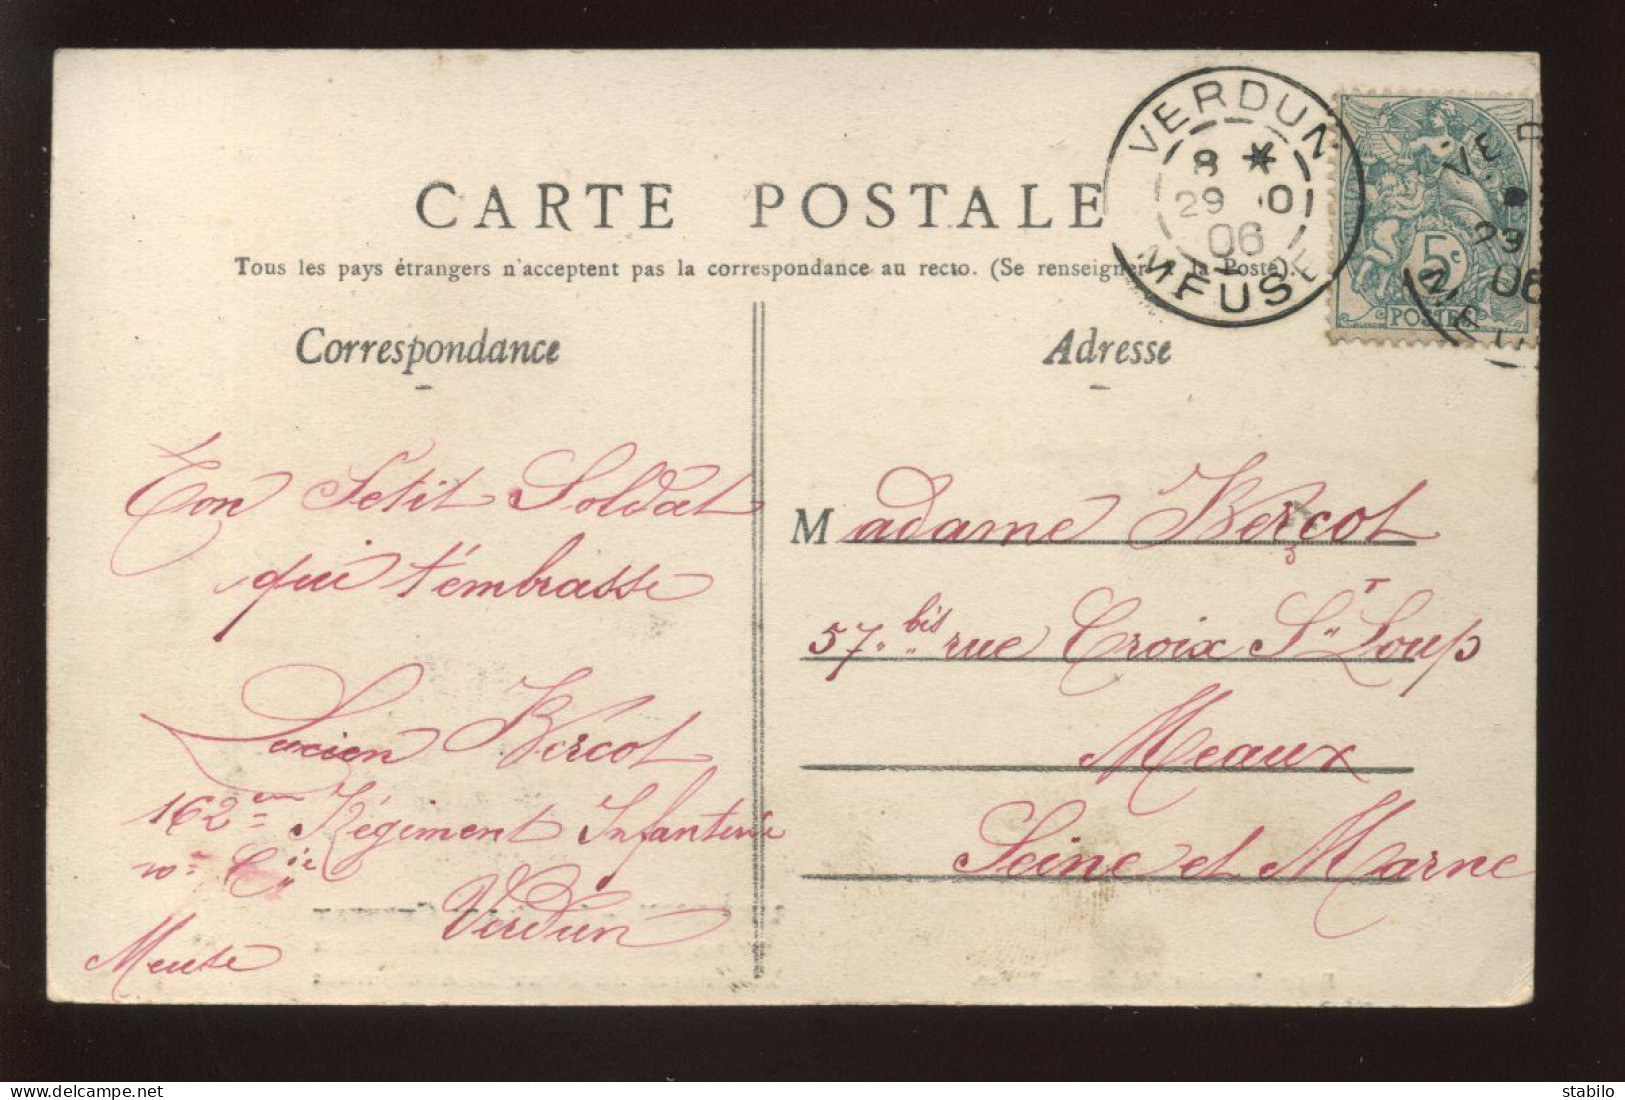 CARTE POSTALE
Tous les pays étrangers n'acceptent pas la correspondance au recto. (Se renseigner à la Poste).
Correspondance
Ton Petit Soldat
qui t'embrasse
Lucien Bercot
162em Régiment Infanterie
10e Cie
Verdun
Meuse
Adresse
VERDUN
8 *
29 -0
06
MEUSE
5c
POSTES
VER
29
06
Madame Bercot
57 bis rue Croix St Loup
Meaux
Seine et Marne
stabilo